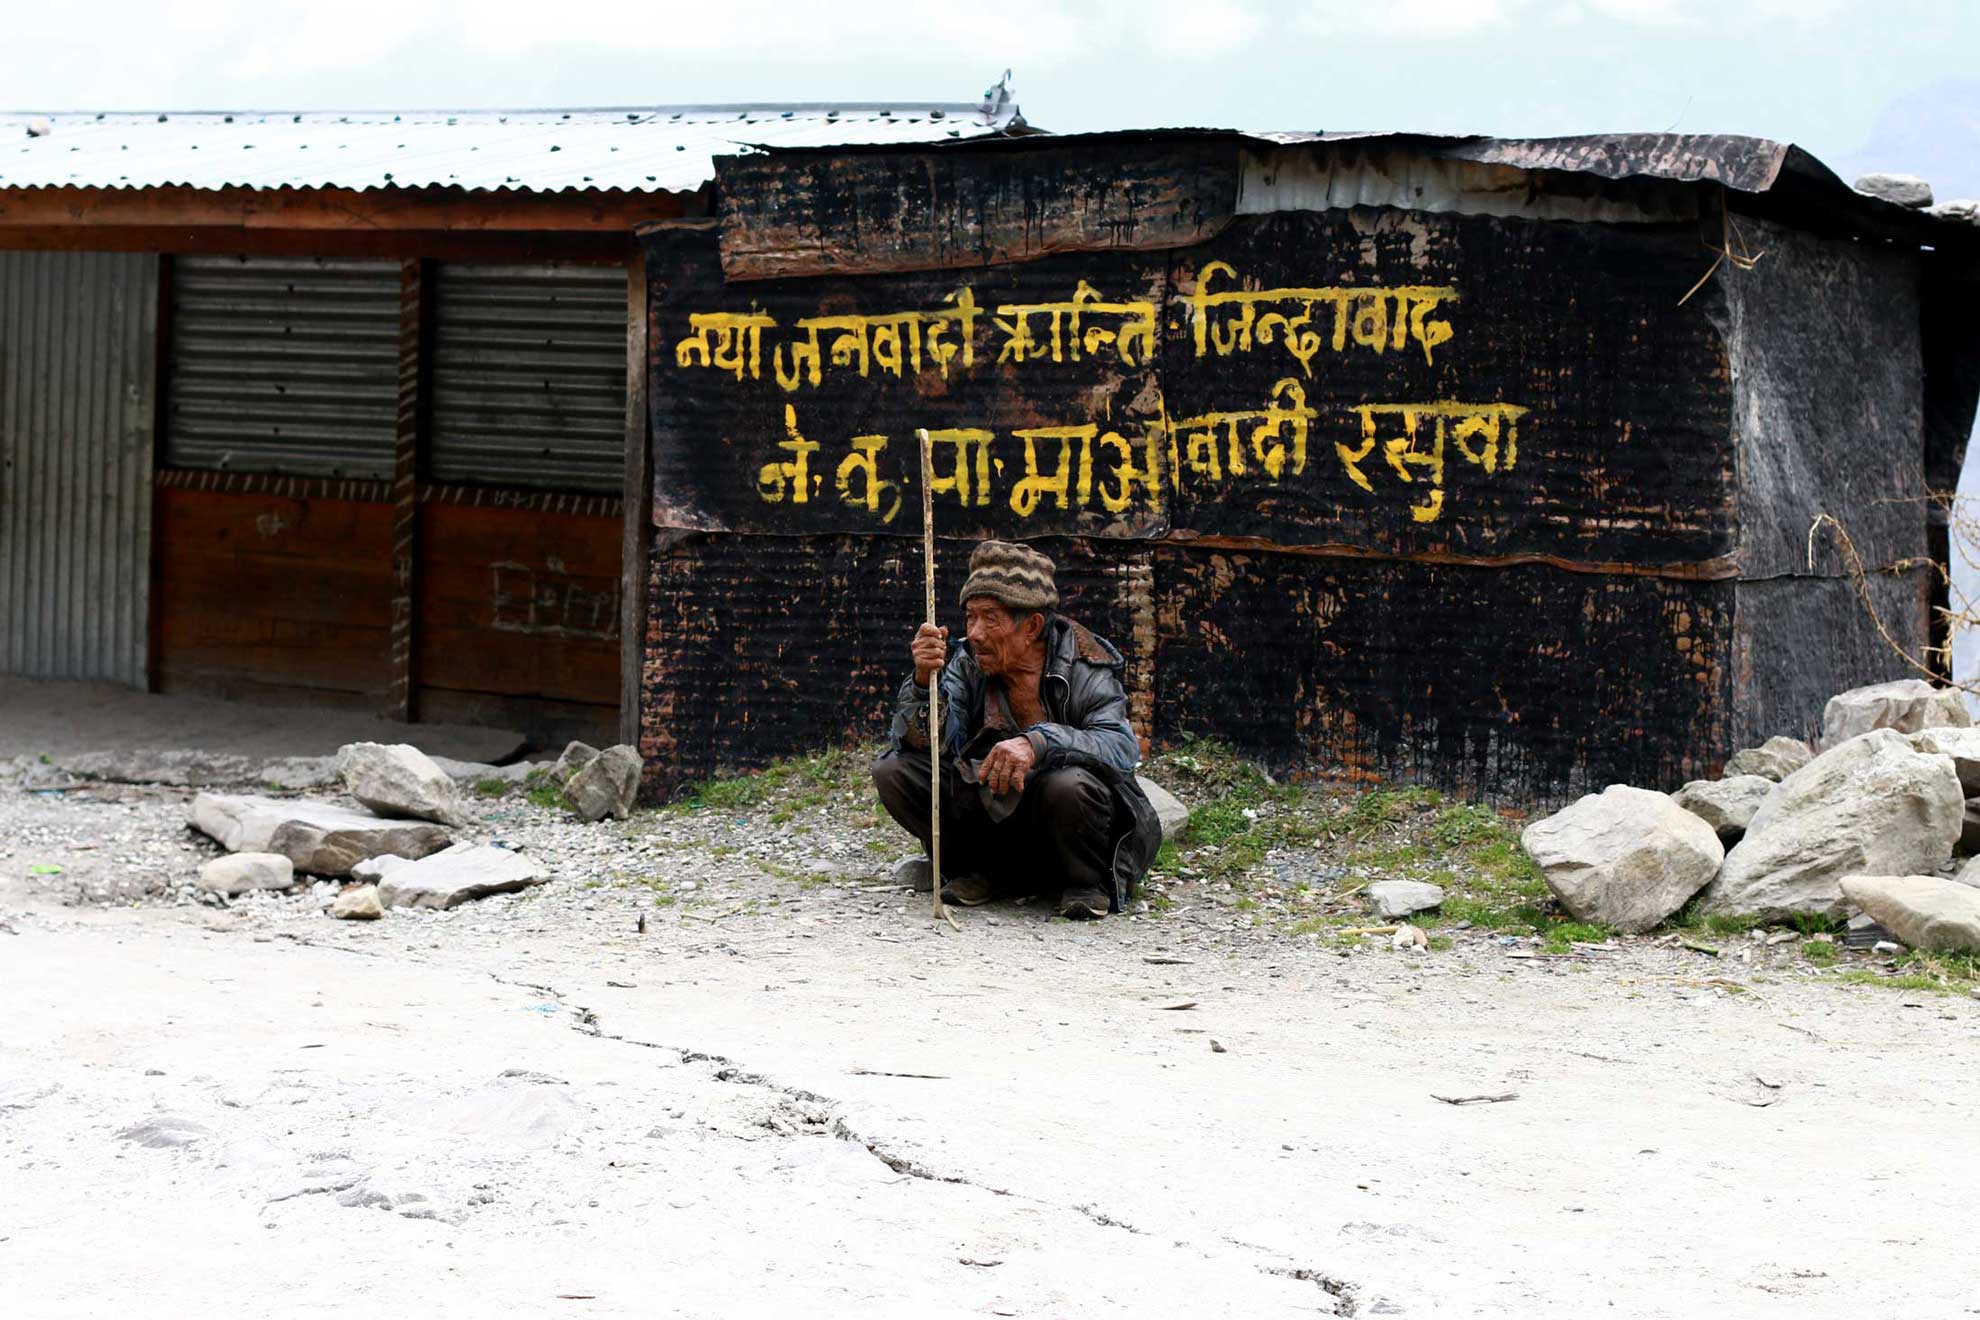 नयाँ जनवादी क्रान्ति जिन्दावाद
ने. क. पा. माओवादी रसुवा